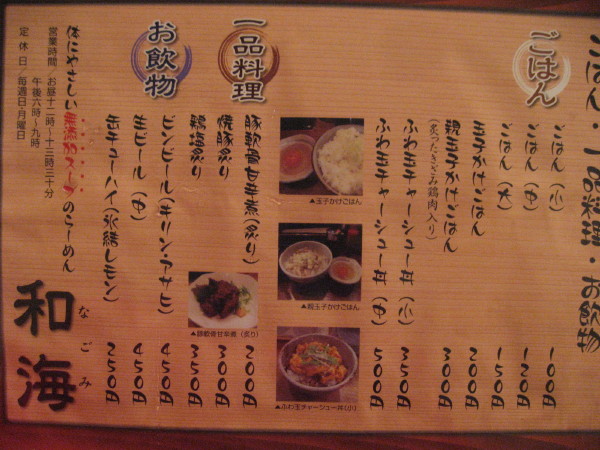 ごはん・一品料理・お飲物
ごはん
ごはん（小） 100円
ごはん（中） 120円
ごはん（大） 150円
玉子かけごはん 200円
親玉子かけごはん 300円
（炙ったきざみ鶏肉入り）
ふわ玉チャーシュー丼（小） 350円
ふわ玉チャーシュー丼（中） 500円
▲玉子かけごはん
▲親玉子かけごはん
▲ふわ玉チャーシュー丼（小）
一品料理
豚軟骨甘辛煮（炙り） 200円
焼豚炙り 300円
鶏塩炙り 350円
▲豚軟骨甘辛煮（炙り）
お飲物
ビンビール（キリン・アサヒ） 450円
生ビール（中） 450円
缶チューハイ（氷結レモン） 250円
体にやさしい無添加スープのらーめん
和海
なごみ
営業時間 お昼十二時～十三時三十分
午後六時～九時
定休日／毎週日・月曜日